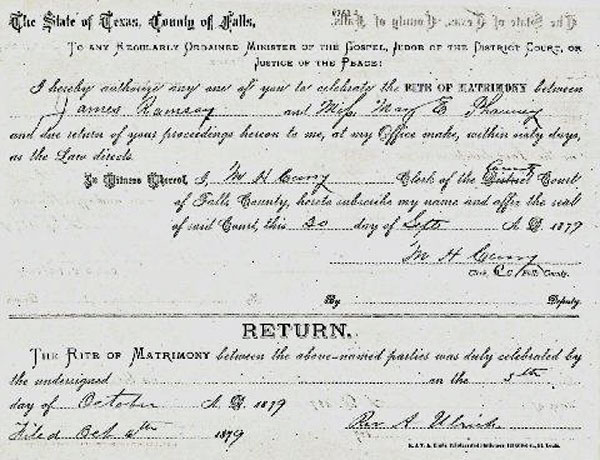 The State of Texas, County of Falls.
To any Regularly Ordained Minister of the Gospel, Judge of the District Court, or
Justice of the Peace:
I hereby authorize any one of you to celebrate the RITE OF MATRIMONY between
James Ramsay and Miss May E
and due return of your proceedings hereon to me, at my Office make, within sixty days,
as the Law directs.
In Witness Whereof, I, M H Curry Clerk of the District County Court
of Falls County, hereto subscribe my name and affix the seal
of said Court, this 30 day of Sept A. D. 1879
M H Curry
Clerk, Co Falls County.
By Deputy.
RETURN.
The Rite of Matrimony between the above-named parties was duly celebrated by
the undersigned on the 5th
day of October A. D. 1879
Filed Oct 1879
Rev A. Ulrich